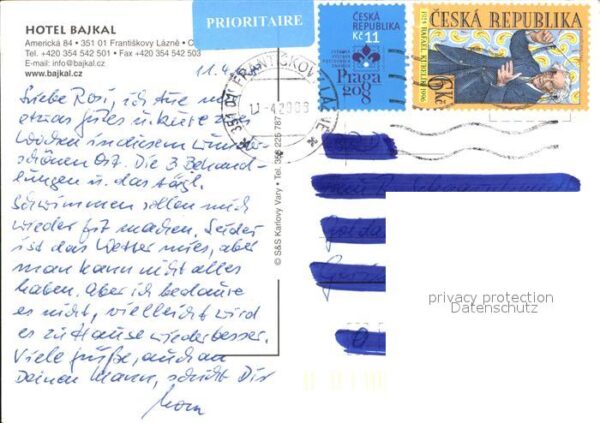 HOTEL BAJKAL
Americká 84 • 351 01 Františkovy Lázně •
Tel. +420 354 542 501 • Fax +420 354 542 503
E-mail: info@bajkal.cz
www.bajkal.cz
PRIORITAIRE
ČESKÁ
REPUBLIKA
Kč 11
Praga
2008
ČESKÁ REPUBLIKA
1914 RAFAEL KUBELÍK 1996
Kč
351 01 FRANTIŠKOVY LÁZNĚ
11.-4.2008
11.4.
Liebe Rosi, ich tue mir
etwas gutes u. kure zwei
Wochen in diesem wunder-
schönen Ort. Die 3 Behand-
lungen u. das tägl.
Schwimmen sollen mich
wieder fit machen. Leider
ist das Wetter mies, aber
man kann nicht alles
haben. Aber ich bedaure
es nicht, vielleicht wird
es zu Hause wieder besser.
Viele Grüße, auch an
Deinen Mann, schickt Dir
© S&S Karlovy Vary • Tel. 353 225 787
privacy protection
Datenschutz